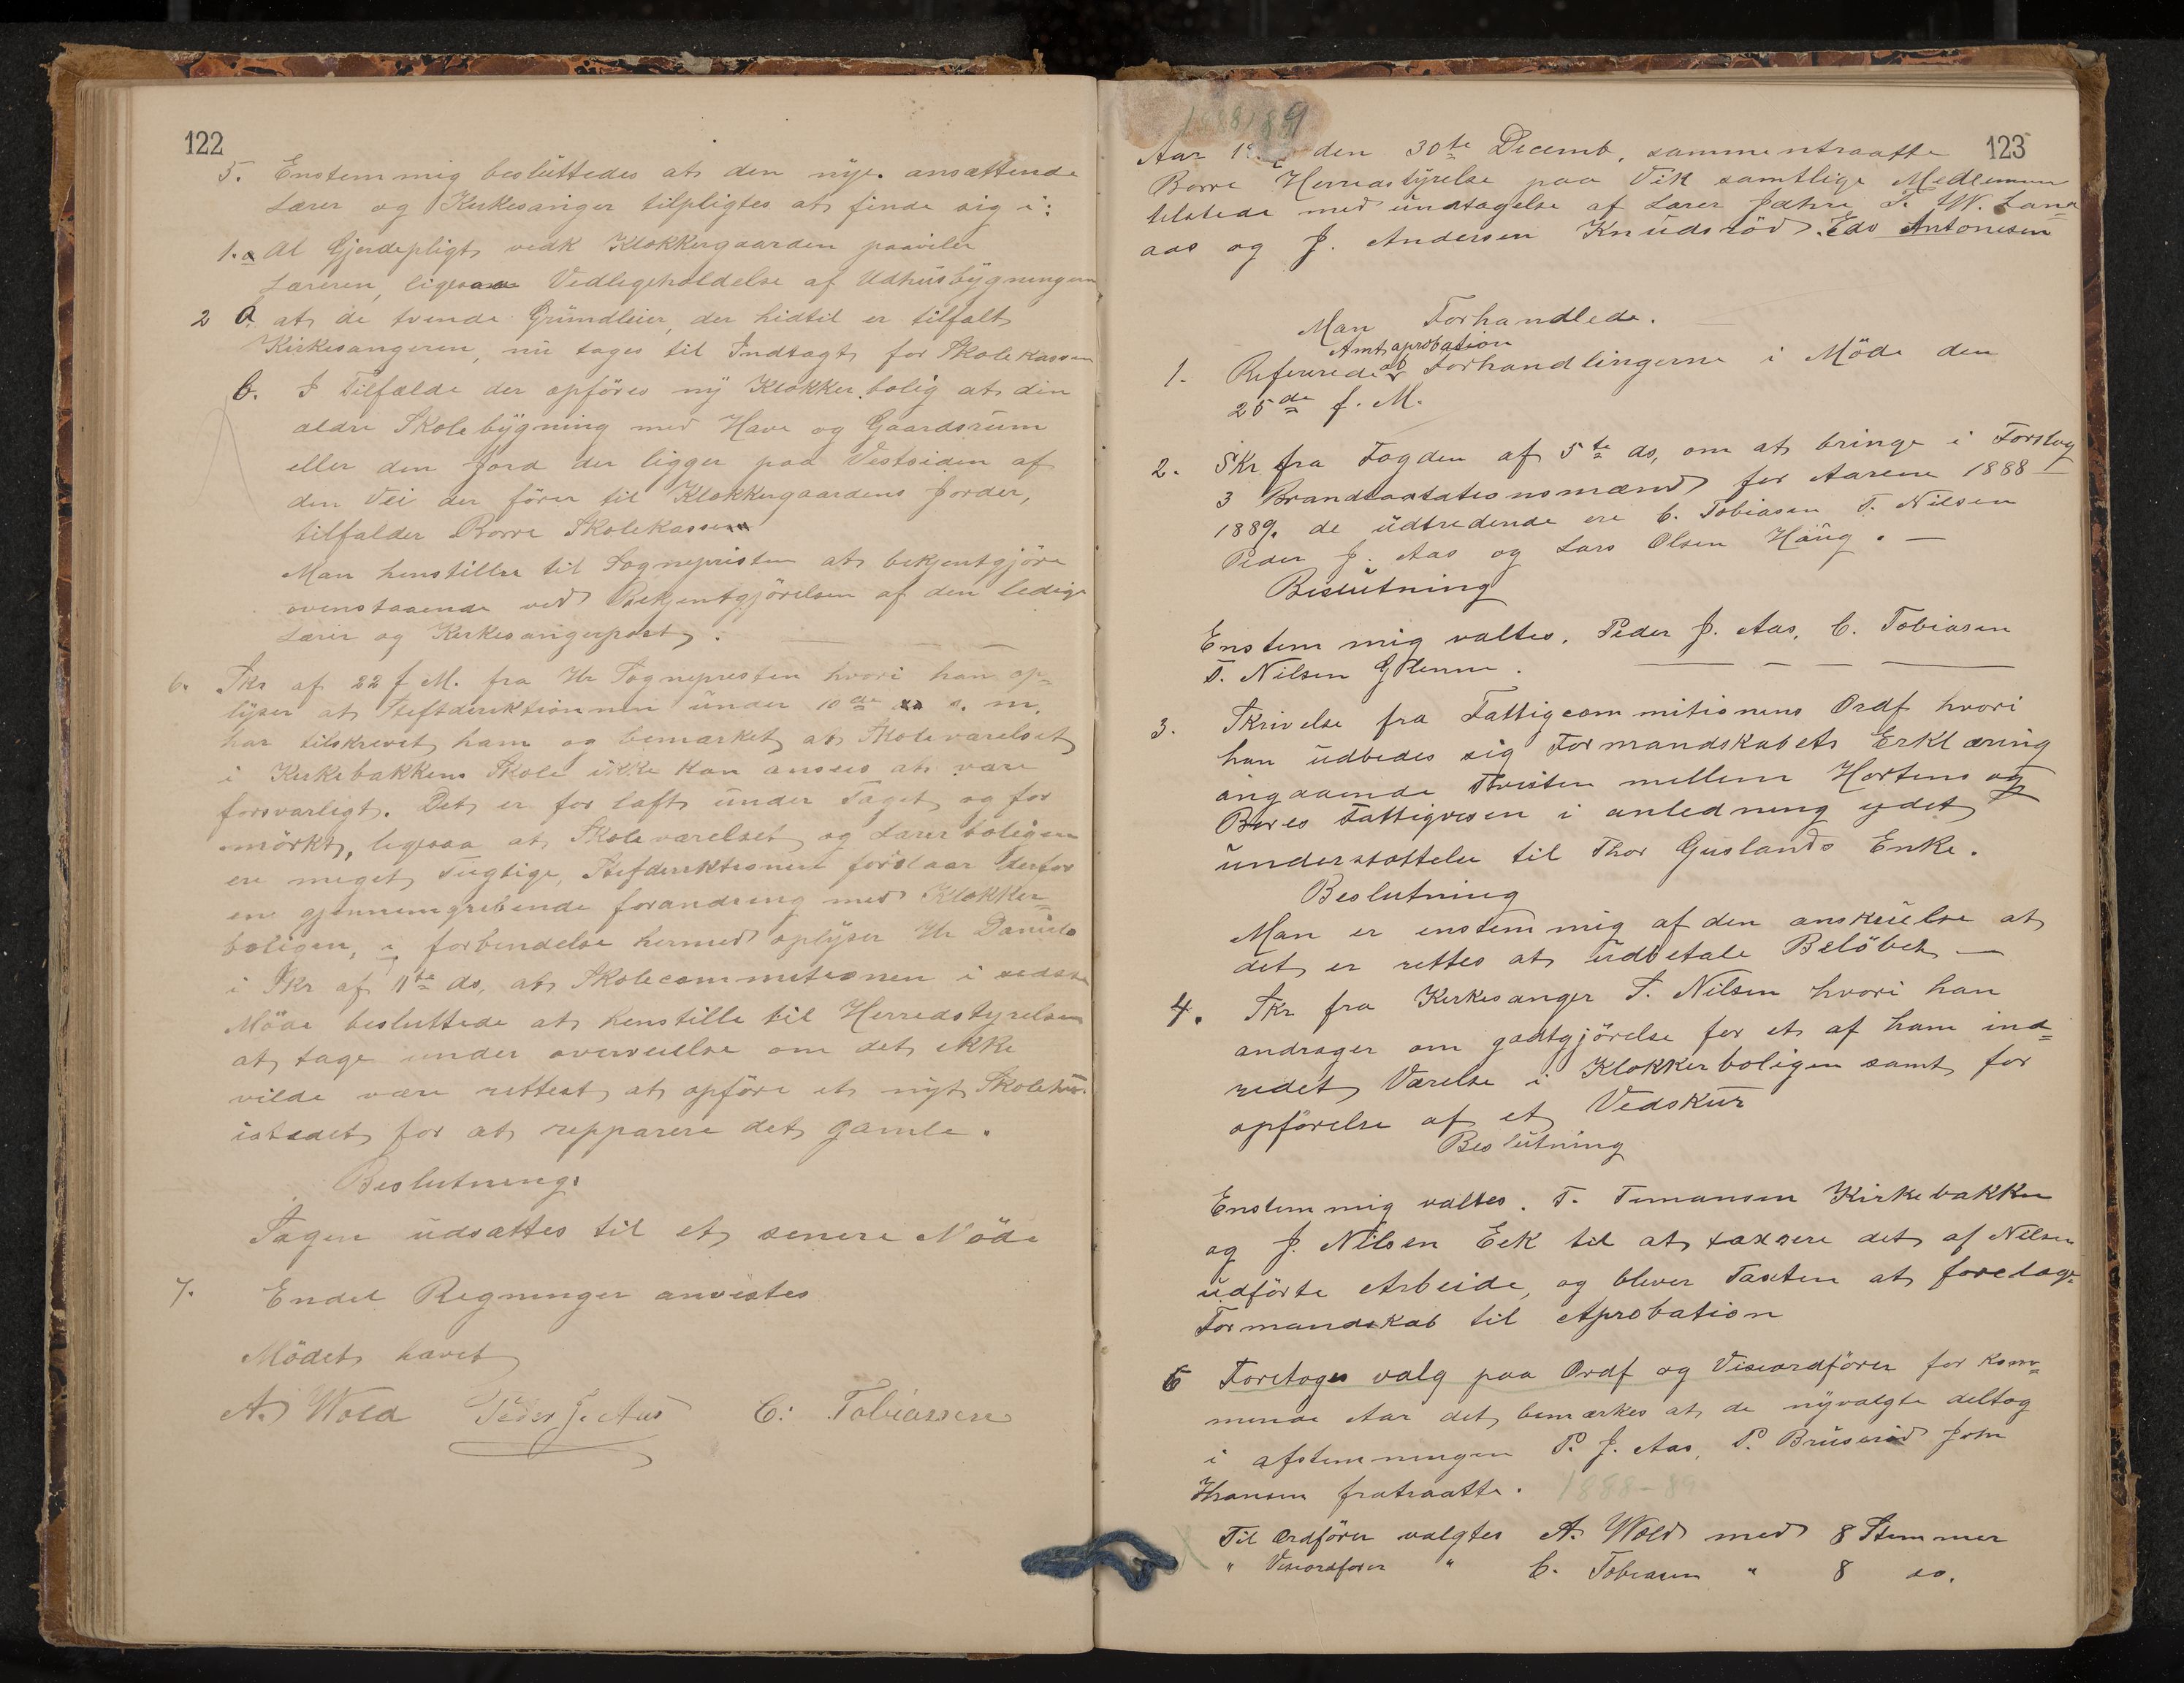 122
5. Enstemmig besluttedes at den nye. ansættende
Lærer og Kirkesanger tilpligtes at finde sig i:
1. a Al Gjerdepligt vedk Klokkergaarden paaviler
Læreren, ligesaa Vedligeholdelse af Udhusbygningern
2 a at de tvende Grundleier, der hidtil er tilfalt
Kirkesangeren, nu tages til Indtægt for Skolekassen
b. I Tilfælde der opföres ny Klokkerbolig at den
ældre Skolebygning med Have og Gaardsrum
eller den Jord der ligger paa Vestsiden af
den Vei der förer til Klokkergaardens Jorder,
tilfalder Borre Skolekassen
Man henstiller til Sognepresten at bekjentgjöre
ovenstaaende ved Bekjentgjörelsen af den ledige
Lærer og Kirkesangerpost.
6. Skr af 22 f M. fra Hr Sognepresten hvori han op=
lyser at Stiftdirektionnen under 10de s. m.
har tilskrevet ham og bemærket at Skoleværelset
i Kirkebakkens Skole ikke kan ansees at være
forsvarligt. Det er for lavt under Taget og for
mörkt, ligesaa at Skoleværelset og Lærerboligen
ere meget fugtige, Stiftdirektionen foreslaar derfor
en gjennemgribende forandring med Klokker=
boligen, i forbindelse hermed oplyser Hr Daniels
i Skr af 11te ds, at Skolecommitionen i sidste
Möde besluttede at henstille til Herredstyrelsen
at tage under overveielse om det ikke
vilde være rettest at opföre et nyt Skolehus
istedet for at repparere det gamle.
Beslutning.
Sagen udsættes til et senere Möde
7. Endel Regninger anvistes
Mödet hævet
A. Wold Peder J. Aas C. Tobiassen
1888/89
123
Aar den 30te Decemb. sammentraatte
Borre Herredstyrelse paa Vik samtlige Medlemmer
tilstede med undtagelse af Lærer Jahre T. W. Lan=
aas og J. Andersen Knudsröd Edv Antonisen
Man Forhandlede.
Amtaprobation
1. Refereredes af Forhandlingerne i Möde den
25de f. M.
2. Skr fra Fogden af 5te ds, om at bringe i Forslag
3 Brandtaxtationsmænd for Aarene 1888 —
1889. de udtredende ere C. Tobiasen T. Nilsen
Peder J. Aas og Lars Olsen Haug. —
Beslutning
Enstemmig valtes. Peder J. Aas, C. Tobiasen
T. Nilsen Glenne.
3. Skrivelse fra Fattigcommitionens Ordf hvori
han udbedes sig Formandskabets Erklæring
angaaende Tvisten mellem Hortens og
Bores Fattigvesen i anledning ydet
understøttelse til Thor Guslands Enke.
Beslutning
Man er enstemmig af den anskuelse at
det er rettes at udbetale Belöbet —
4. Skr fra Kirkesanger T. Nilsen hvori han
andrager om godtgjörelse for et af ham ind=
redet Værelse i Klokkerboligen samt for
opförelse af et Vedskur
Beslutning
Enstemmig valtes. T. Timansen Kirkebakken
og J. Nilsen Eek til at taxsere det af Nilsen
udförte Arbeide, og bliver Taxten at forelæg=
Formandskab til Aprobation
5 Foretoges valg paa Ordf og Viseordförer for kom=
mende Aar det bemærkes at de nyvalgte deltog
i afstemningen P. J. Aas, P. Bruserød John
Hansen fratraatte. 1888-89
Til Ordförer valgtes A. Wold med 8 Stemmer
" Viseordförer " C. Tobiasen " 8 do.